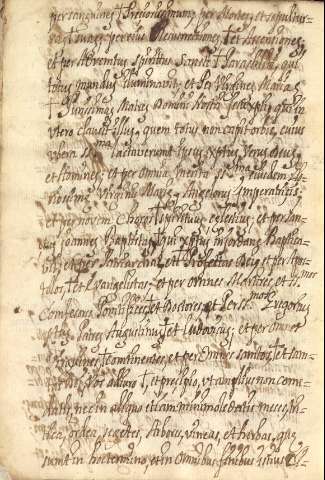 per sanguinem † preciosissimum, per Mortem, et sepultu-
ram † suam, per eius Resurrectionem † et Ascentionem,
et per Adventum Spiritus Sancti † Paracliti, qui
totum mundum illuminavit, et per Virginem Mariam
† Purissimam Matrem Domini Nostri Jesu xpti, que in
utero clausit illum, quem totus non capit orbis, cuius
ubera lactaverunt ipsum xptum verus Deus,
et homines, et per omnia merita eiusdem
Virginis Marie, Angelorum Imperatricis,
et per novem Choros † Spirituum celestium, et per San-
ctus Joannes Baptista † qui xptum in Jordane Baptiza-
vit, et per Patriarchas, et Prophetas Dei, et per Apos-
tolos, † et Evangelistas, et per omnes Martires, et
Confesores, Pontifices † et Doctores, et per
Patres Augustinus † et Ludovicus, et per omnes
Virgines, † Continentes, et per Omnes santos, † et San-
Vos adiuro †, et precipio, ut amplius non come-
datis, nec in aliquo etiam minimo ledatis messes,
ordea, segetes, fabas, vineas, et herbas, que
sunt in hoc termino, et in Omnibus finibus istius